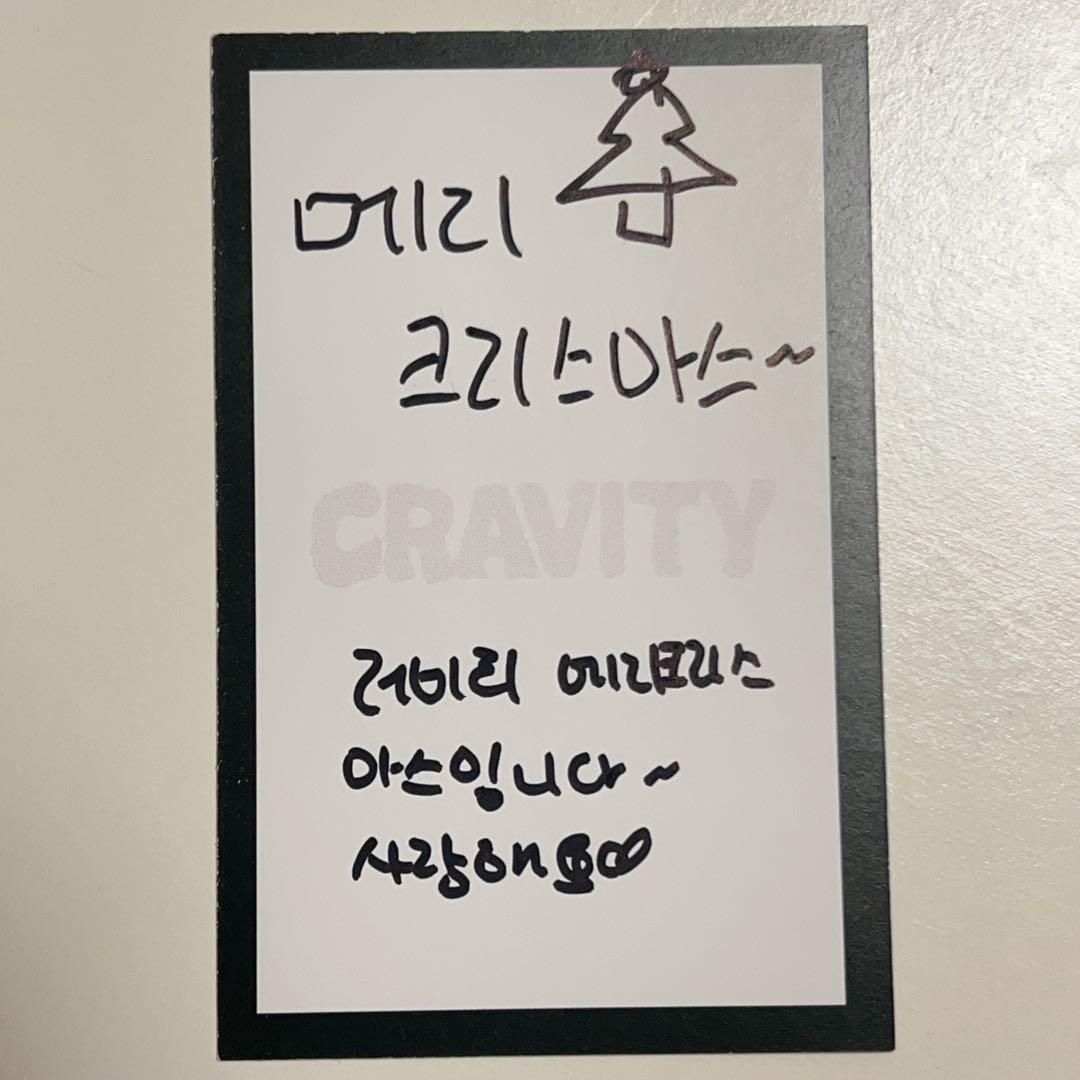 메리
크리스마스~
CRAVITY
러비티 메리크리스
마스입니다~
사랑해요